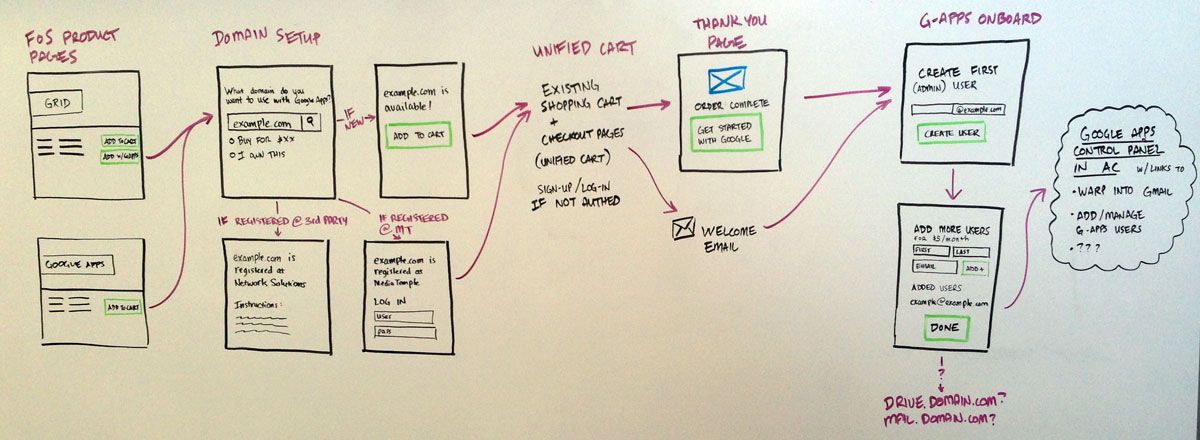 FOS PRODUCT
PAGES
GRID
ADD TO CART
ADD W/GAPPS
GOOGLE APPS
ADD TO CART
DOMAIN SETUP
What domain do you
want to use with Google Apps?
example.com
O BUY FOR $XX
O I OWN THIS
IF
NEW
example.com is
available!
ADD TO CART
IF REGISTERED @ 3RD PARTY
example.com is
registered at
Network Solutions
Instructions:
IF REGISTERED
@ MT
example.com is
registered at
Media Temple
LOG IN
user
pass
UNIFIED CART
EXISTING
SHOPPING CART
+
CHECKOUT PAGES
(UNIFIED CART)
SIGN-UP/LOG-IN
IF NOT AUTHED
THANK YOU
PAGE
ORDER COMPLETE
GET STARTED
WITH GOOGLE
WELCOME
EMAIL
G-APPS ONBOARD
CREATE FIRST
(ADMIN) USER
@example.com
CREATE USER
ADD MORE USERS
FOR $5/month
FIRST LAST
EMAIL ADD +
ADDED USERS
example@example.com
DONE
?
DRIVE.DOMAIN.COM?
MAIL.DOMAIN.COM?
GOOGLE APPS
CONTROL PANEL
IN AC W/LINKS TO
• WARP INTO GMAIL
• ADD/MANAGE
G-APPS USERS
• ???